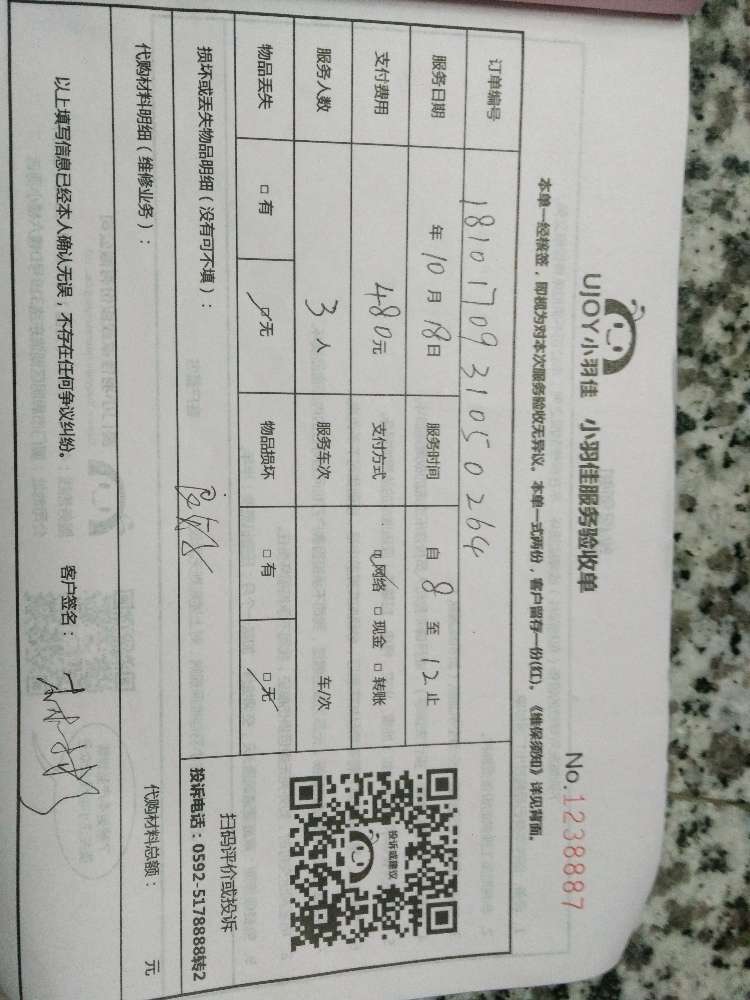 UJOY小羽佳 小羽佳服务验收单
No.1238887
本单一经核签，即视为对本次服务验收无异议。本单一式两份，客户留存一份(红)。《维保须知》详见背面。
订单编号 1810170931050264
服务日期 年10月18日 服务时间 自8至12止
支付费用 480元 支付方式 □网络 □现金 □转账
服务人数 3人 服务车次 车/次
物品丢失 □有 □无 物品损坏 □有 □无
投诉或建议
扫码评价或投诉
投诉电话：0592-5178888转2
损坏或丢失物品明细（没有可不填）：
代购材料明细（维修业务）： 代购材料总额： 元
以上填写信息已经本人确认无误，不存在任何争议纠纷。 客户签名：